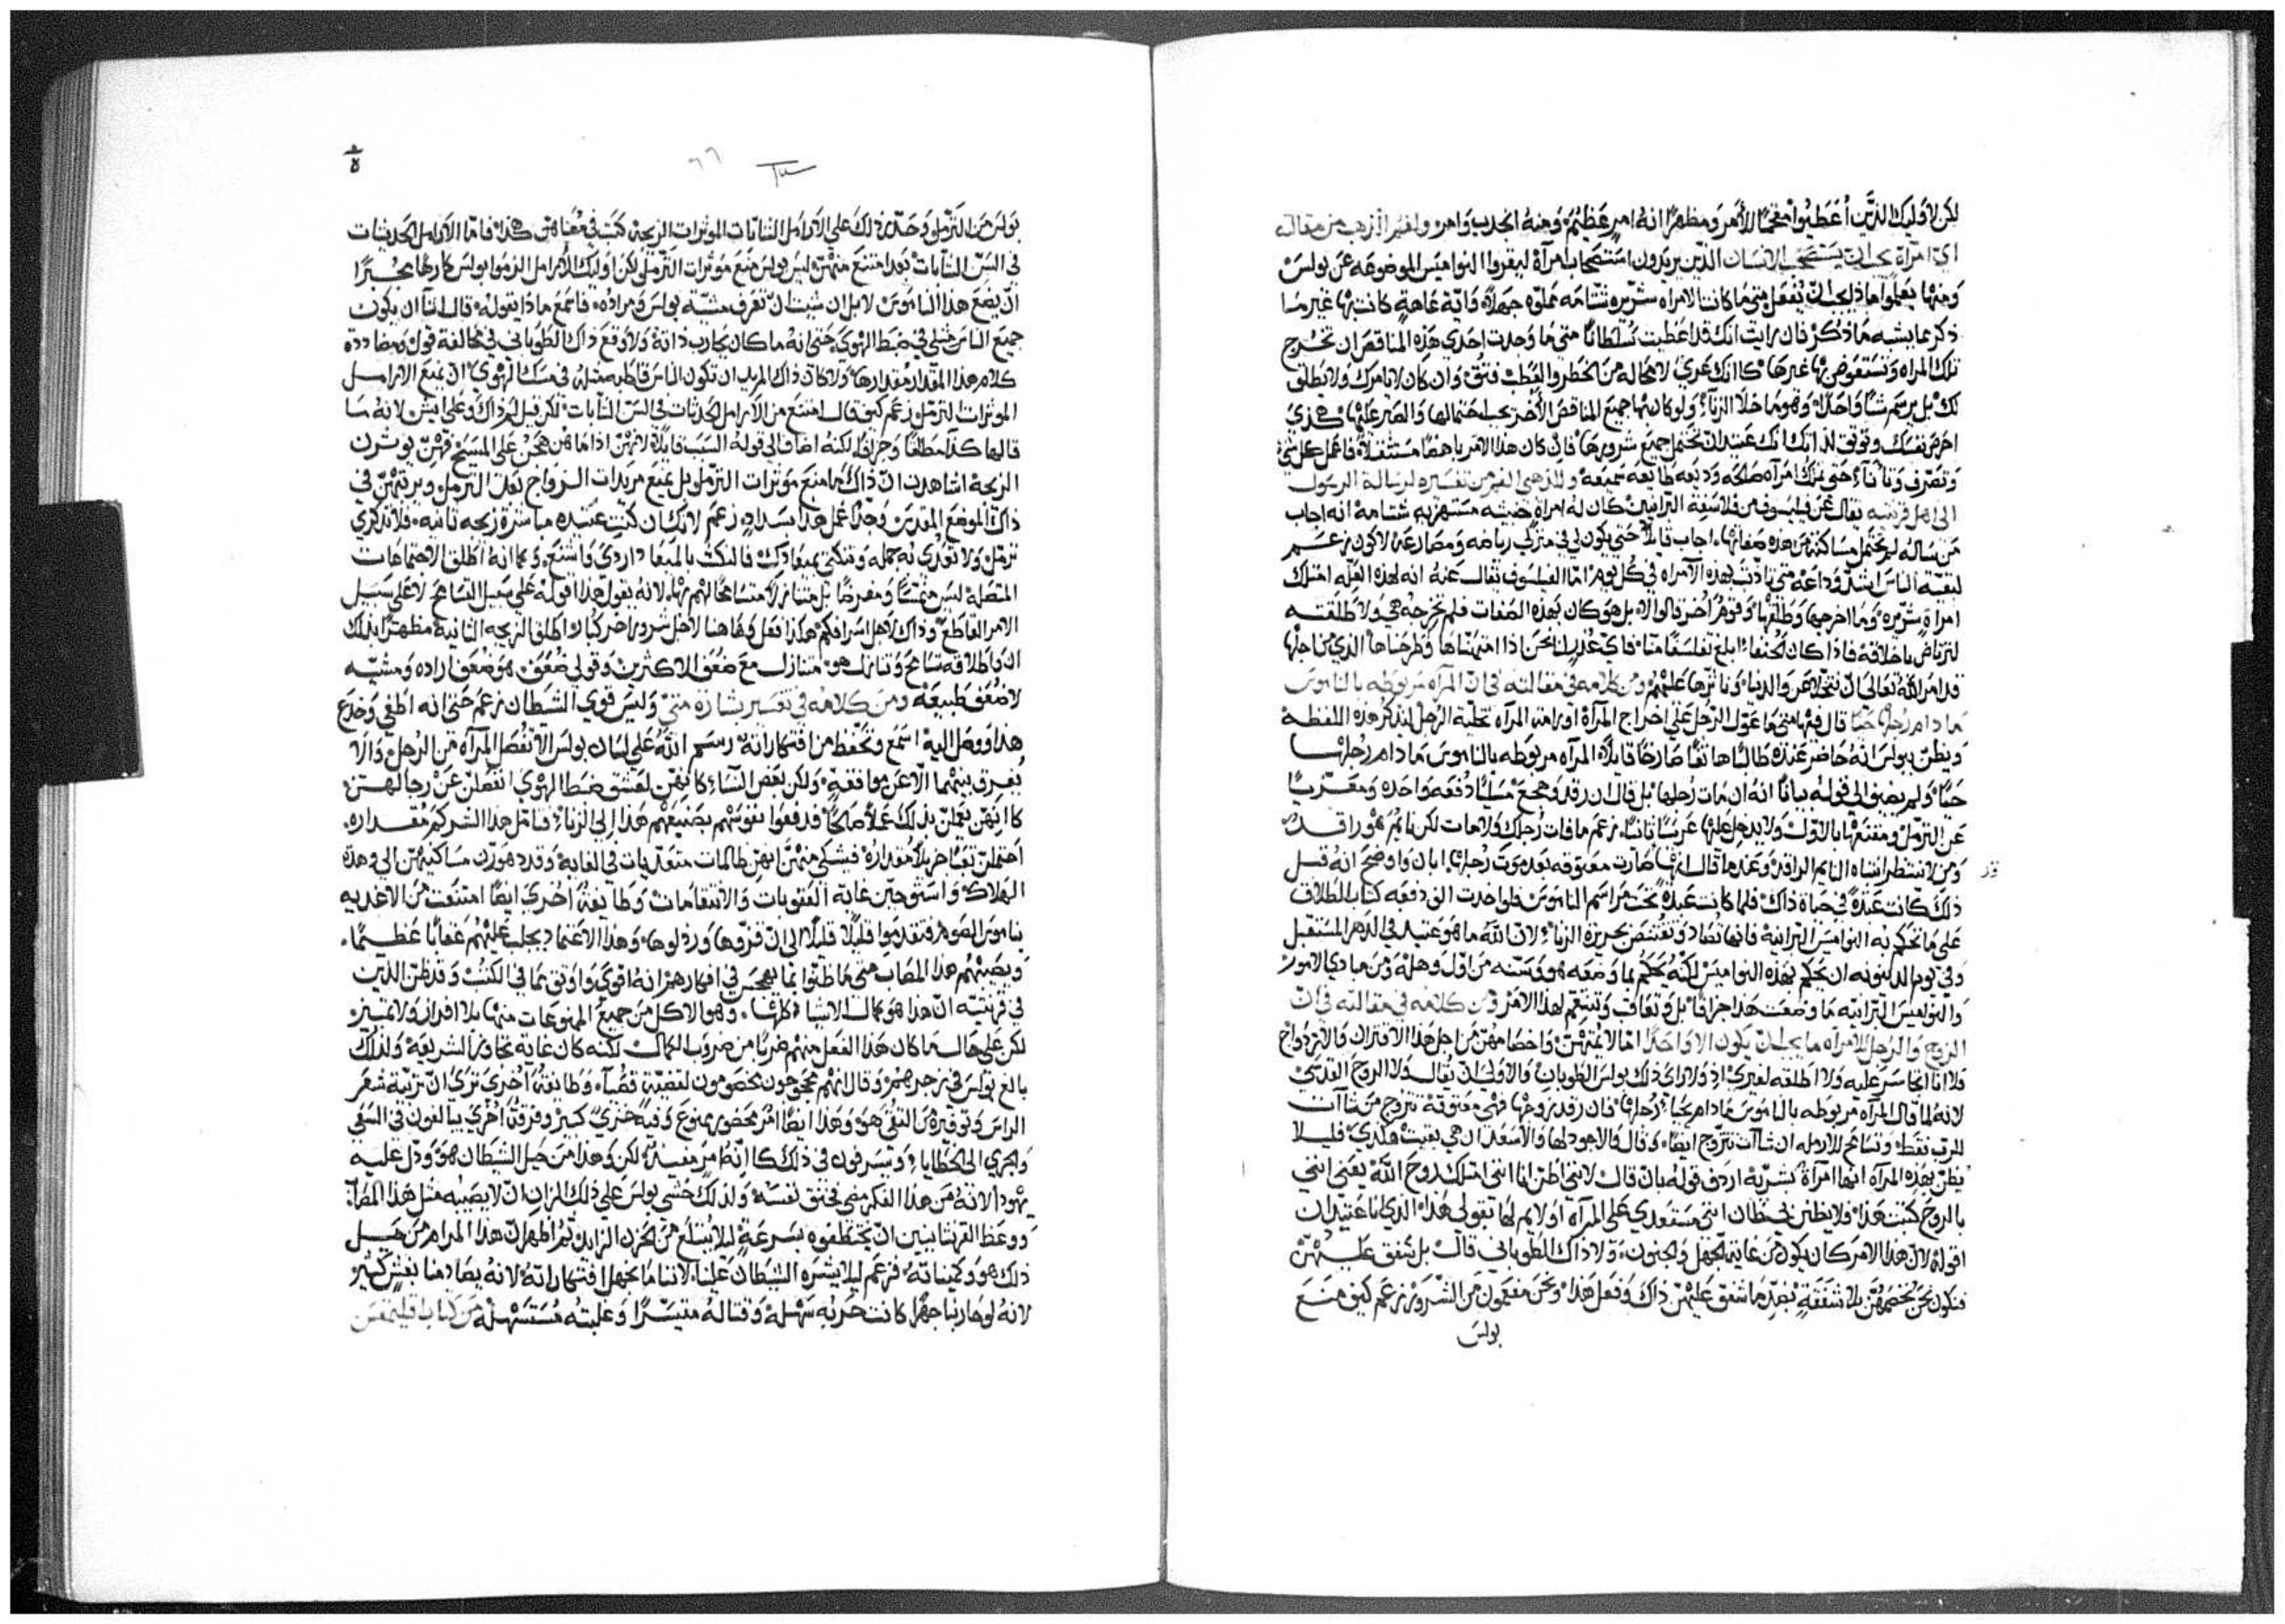 لكن لاوليك الذين اعطيوا مفخمًا للامر ومظهرًا انه امر عظيم ومنه انجذب وامن ولفم الذهب من مقالة
اي امرأة يجب ان يستصحب الانسان الذين يريدون استصحاب امرأة ليقروا النواميس الموضوعه عن بولس
ومنها يعلموا ماذا يجب ان يفعل متى ما كانت الامراه شريره شتامه مملوه جهلاً واية عاهة كانت بها غير ما
ذكر مما يشبه ما ذكر فان رايت انك قد اعطيت سلطانًا متى ما وجدت احدى هذه المناقص ان تخرج
تلك المراه وتستعوض بها غيرها كانك عري لا محاله من الخطر والعطب فثق وان كان لا يامرك ولا يطلق
لك بل يرسم شيا واحدًا وهو ما خلا الزناء ولو كان بها جميع المناقص الاخر يجب احتمالها والصبر عليها هكذي
احرص نفسك وتوثق لذاتك انك عتيد ان تحتمل جميع شرورها فان كان هذا الامر باهضًا مستثقلاً فاعمل كل شي
وتصرف وتانا حتى تملك امرأه صالحه وديعه طايعه سميعه وللذهبي الفم من تفسيره لرسالة الرسول
الى اهل قرنتيه يقال عن فيلسوف من فلاسفة البرانيين كان له امراة خبيثه مستهزيه شتامة انه اجاب
من ساله لم يحتمل مساكنة من هذه صفاتها اجاب قايلاً حتى يكون لي في منزلي رياضه ومصارعة لاكون زعم
لبقية الناس اشد وداعة متى تادبت بهذه الامراه في كل يوم اما الفيلسوف يقال عنه انه لهذه العله امتلك
امراة شريره وما اخرجها وطلقها وقوم اخر قالوا لا بل هو كان بهذه الصفات فلم تخرجه هي ولا طلقته
لترتاض باخلاقه فاذا كان الحنفاء ابلغ تفلسفًا منا فاي عذر لنا نحن اذا امتهناها وطرحناها الذي من اجلها
قد امر الله تعالى ان نتخلا عن والدينا ونوثرها عليهم ومن كلامه في مقالته في ان المرآه مربوطه بالناموس
ما دام رجلها حيًا قال فيها متى ما عول الرجل على اخراج المرأة اورامت المرآه تخلية الرجل ليتذكر هذه اللفظة
ويظن ببولس انه حاضر عنده طالبًا هاتفًا صارخًا قايلاً المرآه مربوطه بالناموس ما دام رجلها
حيًا ولم يضف الى قوله بيانًا انه ان مات رجلها بل قال ان رقد وهجع مسليًا دفعه واحده ومعزيًا
عن الترمل ومقنعها بالاول ولا يدخل عليها عريسًا ثانيًا زعم ما فات رجلك ولا مات لكن نايم هو راقد
ومن لا ينتظر انتباه النايم الراقد وعندما قال انها صارت معتوقه بعد موت رجلها ابان واوضح انه قبل
ذلك كانت عبدة في حياة ذاك فلما كانت عبدة تحت مراسم الناموس فلو اخذت الف دفعه كتاب الطلاق
على ما تحكم به النواميس البرانية فانها تصاد وتقتنص بجريرة الزناء لان الله ما هو عتيد في الدهر المستقبل
وفي يوم الدينونه ان يحكم بهذه النواميس لكنه يحكم بما وضعه هو وسنه من اول وهلة ومن مبادي الامور
والنواميس البرانيه ما وضعت هذا جزافًا بل وتعاقب وتنتقم لهذا الامر ومن كلامه في مقالته في ان
الزوج والرجل للامراه ما يجب ان يكون الا واحدًا امّا لا تمتهن واخصامهن من اجل هذا الاقتران والازدواج
فلا انا اتجاسر عليه ولا اطلقه لغيري اذ ولا راى ذلك بولس الطوبان والاولى ان يقال ولا الروح القدسي
لانه لما قال المرآه مربوطه بالناموس ما دام يحيا رجلها فان رقد زوجها فهي معتوقة تتزوج من شاآت
للرب فقط وتسامح للارمله ان شاآت تتزوج ايضًا وقال والاجود لها والاسعد ان هي بقيت هكذي فليلا
يظن بهذه المرآه انها امرأة بشريه اردف قوله بان قال لانني اظن انا انني امتلك روح الله يعني انني
بالروح كتبت هذا فلا يظن شيطان انني مستعدي على المرآه او لايم لها بقولي هذا الذي انا عتيد ان
اقوله لان هذا الامر كان يكون من غاية الجهل والجنون ولا ذاك الطوباني قال بل شفق عليهن
فنكون نحن نخصمهن بلا شفقة بضد ما شفق عليهن ذاك وفعل هذا ونحن مفعمون من الشرور زعم كيف منع
بولس
بولس من الترمل وحدد ذلك على الارامل الشابات الموثرات الزيجه كتب في معناهن هكذا فاما الارامل الحدثيات
في السن الشابات بعدا امتنع منهن ليس بولس منع موثرات الترمل لكن اوليك الارامل الزموا بولس كارهًا مجبرًا
ان يضع هذا الناموس لا بل ان شيت ان تعرف مشيّة بولس ومراده فاسمع ماذا يقوله قال انا ان يكون
جميع الناس مثلي في ضبط الهوى حتى انه ما كان يحارب ذاته ولا وقع ذاك الطوباني في مخالفة قول ومضاددة
كلام هذا المقدار مقدارها ولا كان ذاك المريد ان تكون الناس قاطبه مثله في مسك الهوى ان يمنع الارامل
الموثرات الترمل زعم كيف قال امتنع من الارامل الحدثات في السن الشابات لكن قيل لم ذاك وعلى ايش لانه ما
قالها كلامًا مطلقًا وجزافًا لكنه اضاف الى قوله السبب قايلاً لانهن اذا ما هن هجن على المسيح فهن يوثرن
الزيجة اشاهدت ان ذاك ما منع موثرات الترمل بل يمنع مريدات الزواج بعد الترمل ويرتبهن في
ذاك الموضع المقدس وجدًا عمل هذا بسداد زعم لانك ان كنت عتيده مباشرة زيجه ثانيه فلا تذكري
ترمل ولا تعدي به جمله وتنكثي بميعادك فالنكث بالميعاد اردي واشنع وكما انه اطلق الاجتماعات
المتصلة ليس متمننًا ومفرضًا بل متنازلاً متسامحًا لهم بها لانه يقول هذا اقوله على سبيل التسامح لا على سبيل
الامر القاطع وذاك لاجل اسرافكم هكذا فعل وهاهنا لاجل شرور اخر كبار اطلق الزيجه الثانية مظهرًا بذلك
ان باطلاقه تسامح وتنازل هو متنازل مع ضعف الاكثرين وقولي ضعف هو ضعف اراده ومشيّه
لا ضعف طبيعة ومن كلامه في تفسير بشارة متى وليس قوي الشيطان زعم حتى انه اطغى وخدع
هذا ووصل اليه اسمع وتحفظ من افتكاراته رسم الله على لسان بولس الا تفصل المرآه من الرجل والا
يفرق بينهما الا عن موافقة ولكن بعض النساء كانهن لعشق ضبط الهوى انفصلن عن رجالهن
كانهن يعملن بذلك عملاً صالحًا فدفعوا نفوسهم بصنيعهم هذا الى الزناء فتامل هذا الشر كم مقداره
احتملن تعبًا جزيلاً مقداره فيشتكى منهن انهن ظالمات متعديات في الغايه وقد دهورن مساكنيهن الى وهدة
الهلاك واستوجبن غاية العقوبات والانتقامات وطايفة اخرى ايضًا امتنعت من الاغذيه
بناموس الصوم فتقدموا قليلاً قليلاً الى ان قزروها ورذلوها وهذا الاعتماد يجلب عليهم عقابًا عظيمًا
ويصيبهم هذا المصاب متى ما ظنوا بما يهجس في افكارهم انه اقوى واوثق مما في الكتب وقد ظن الذين
في قرنتيه ان هذا هو كمال الاشيا كلها وهو الاكل من جميع الممنوعات منها بلا افراز ولا تمييز
لكن على حال ما كان هذا الفعل منهم ضربًا من ضروب الكمال لكنه كان غاية تجاوز الشريعة ولذلك
بالغ بولس في زجرهم وقال انهم محجوجون مخصومون لقضية قضاء وطايفة اخرى ترى ان تربية شعر
الراس وتوقيره من التقى هو وهذا ايضًا امر محضور ممنوع وفيه خزي كبير وفرقة اخرى يبالغون في السعي
والجري الى الخطايا ويسرفون في ذلك كانه امر مفيد لكن وهذا من حيل الشيطان هو ودل عليه
يهوذا لانه من هذا الفكر مضى فخنق نفسه ولذلك خشي بولس على ذلك الزان ان لا يصيبه مثل هذا المصاب
ووعظ القرنتانيين ان يختطفوه بسرعة ليلا يبتلع من الحزن الزايد ثم اظهر ان هذا المرام من حيل
ذلك هو وكميناته فزعم ليلا يشره الشيطان علينا لاننا ما نجهل افتكاراته لانه يصادمنا بغش كثير
لانه لو حاربنا جهرًا كانت حربه سهلة وقتاله متيسرًا وغلبته مستسهلة من كتاب اقليمقس